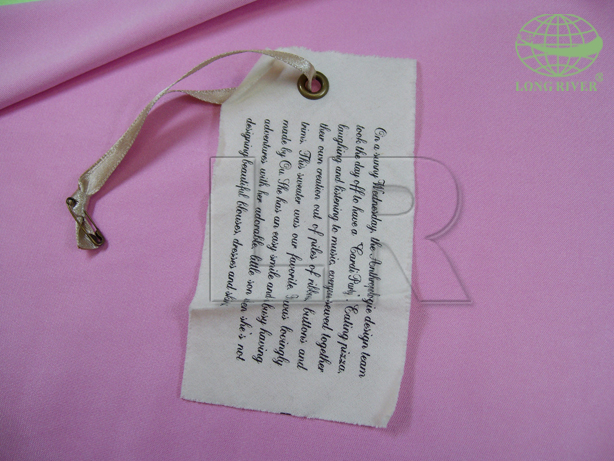 LONG RIVER®
On a sunny Wednesday, the Anthropologie design team
took the day off to have a "Cardi Party". Eating pizza,
laughing and listening to music, everyone sewed together
their own creation out of piles of ribbons, buttons and
trims. This sweater was our favorite. It was lovingly
made by Ou. She has an easy smile and busy having
adventures with her adorable little son when she's not
designing beautiful blouses, dresses and
LR